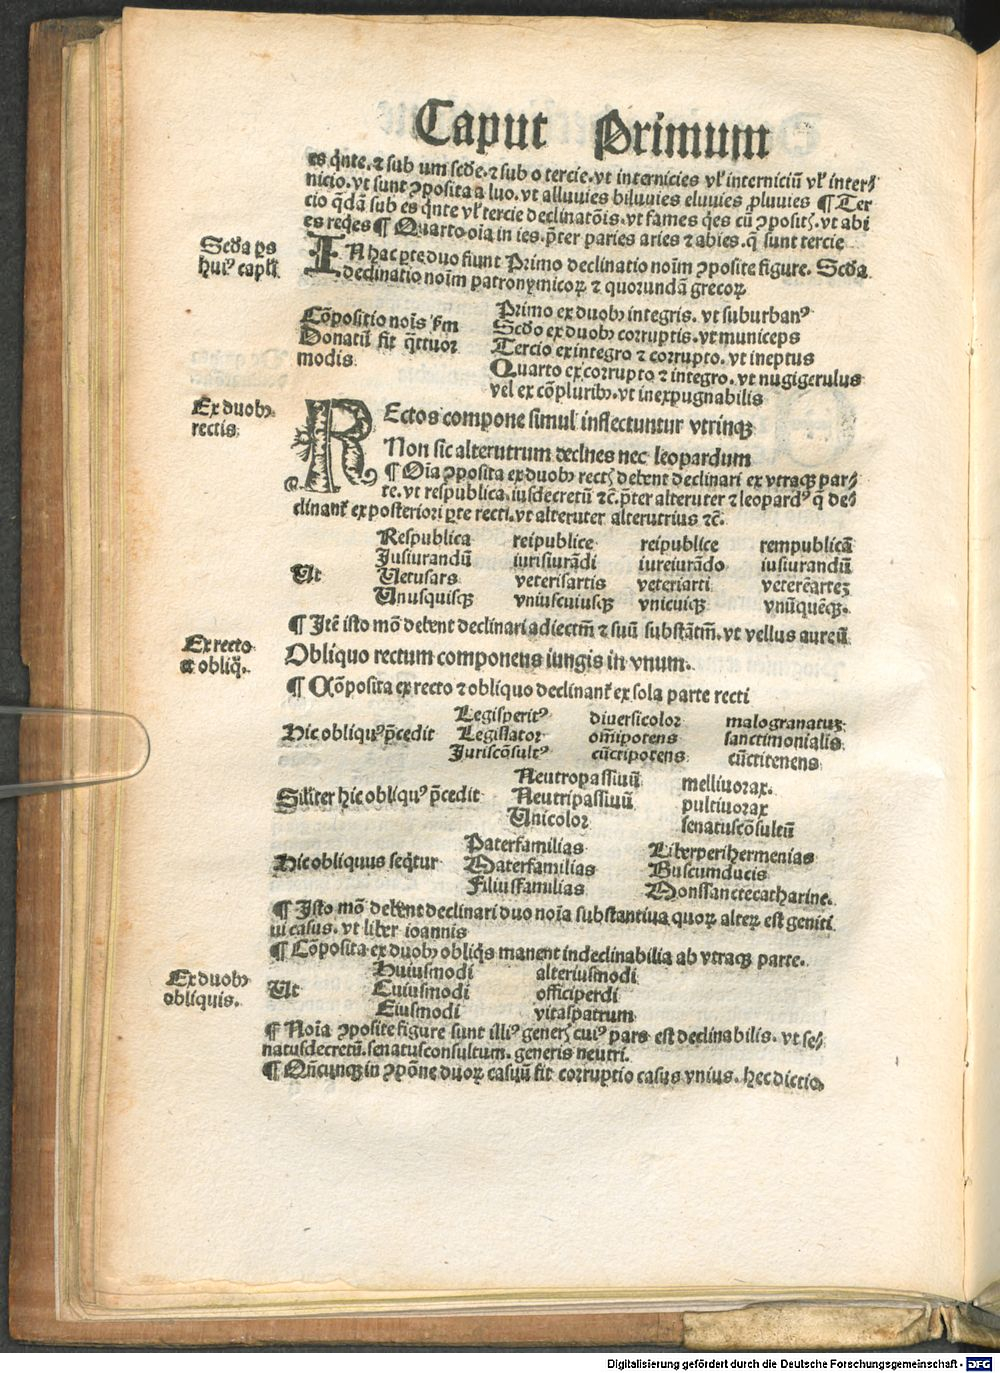 Caput Primum
es q̃nte. ⁊ sub um secũde. ⁊ sub o tercie. vt internicies vl' interniciũ vl' inter⸗
nicio. vt sunt ꝯposita a luo. vt alluuies biluuies eluuies ꝓluuies ¶ Ter
cio q̃dã sub es q̃nte vl' tercie declinatõis. vt fames q̃es cũ ꝯposit. vt abi
es reqes ¶ Quarto oĩa in ies. p̃ter paries aries ⁊ abies. q̃ sunt tercie
Secda ps
huiꝰ capli
IN hac pte duo fiunt Primo declinatio noĩm ꝯposite figure. Secda
declinatio noĩm patronymicoꝝ ⁊ quorundã grecoꝝ
Cõpositio noĩs ẜm
Donatũ fit q̃ttuor
modis
Primo ex duobꝫ integris. vt suburbanꝰ
Secdo ex duobꝫ corruptis. vt municeps
Tercio ex integro ⁊ corrupto. vt ineptus
Quarto ex corrupto ⁊ integro. vt nugigerulus
vel ex cõpluribꝫ. vt inexpugnabilis
Ex duobꝫ
rectis
REctos compone simul inflectuntur vtrinqꝫ
Non sic alterutrum declnes nec leopardum
¶ Oĩa ꝯposita ex duobꝫ rect debent declinari ex vtraqꝫ par⸗
te. vt respublica. iusdecretũ ⁊c̃. p̃ter alteruter ⁊ leopardꝰ q̃ de⸗
clinant̃ ex posteriori pte recti. vt alteruter alterutrius ⁊c̃.
Ut
Respublica reipublice reipublice rempublicã
Iusiurandũ iurisiurãdi iureiurãdo iusiurandũ
Uetusars veterisartis veteriarti veterẽartez
Unusquisqꝫ vniuscuiusqꝫ vnicuiqꝫ vnũquẽqꝫ.
¶ Itẽ isto mõ debent declinari adiectm̃ ⁊ suũ substãtm̃. vt vellus aureũ
Ex recto
⁊ obliq̃.
Obliquo rectum componens iungis in vnum.
¶ Cõposita ex recto ⁊ obliquo declinant̃ ex sola parte recti
Hic obliquꝰ p̃cedit
Legisperitꝰ diuersicolor malogranatuz
Legislator om̃ipotens sanctimonialis
Iuriscõsultꝰ cũctipotens cũctitenens
Silĩter hic obliquꝰ p̃cedit
Neutropassiuũ melliuorax.
Neutripassiuũ pultiuorax
Unicolor senatuscõsultũ
Hic obliquus seq̃tur
Paterfamilias Liberperihermenias
Materfamilias Buscumducis
Filiusfamilias Monssanctecatharine.
¶ Isto mõ debent declinari duo noĩa substantiua quoꝝ alteꝝ est geniti
ui casus. vt liber ioannis
¶ Cõposita ex duobꝫ obliq̃s manent indeclinabilia ab vtraqꝫ parte.
Ex duobꝫ
obliquis.
Ut
Huiusmodi alteriusmodi
Cuiusmodi officiperdi
Eiusmodi vitaspatrum
¶ Noĩa ꝯposite figure sunt illiꝰ gener cuiꝰ pars est declinabilis. vt se⸗
natusdecretũ. senatusconsultum. generis neutri.
¶ Qñcunqꝫ in ꝯpõne duoꝝ casuũ fit corruptio casus vnius. hec dictio
Digitalisierung gefördert durch die Deutsche Forschungsgemeinschaft - DFG